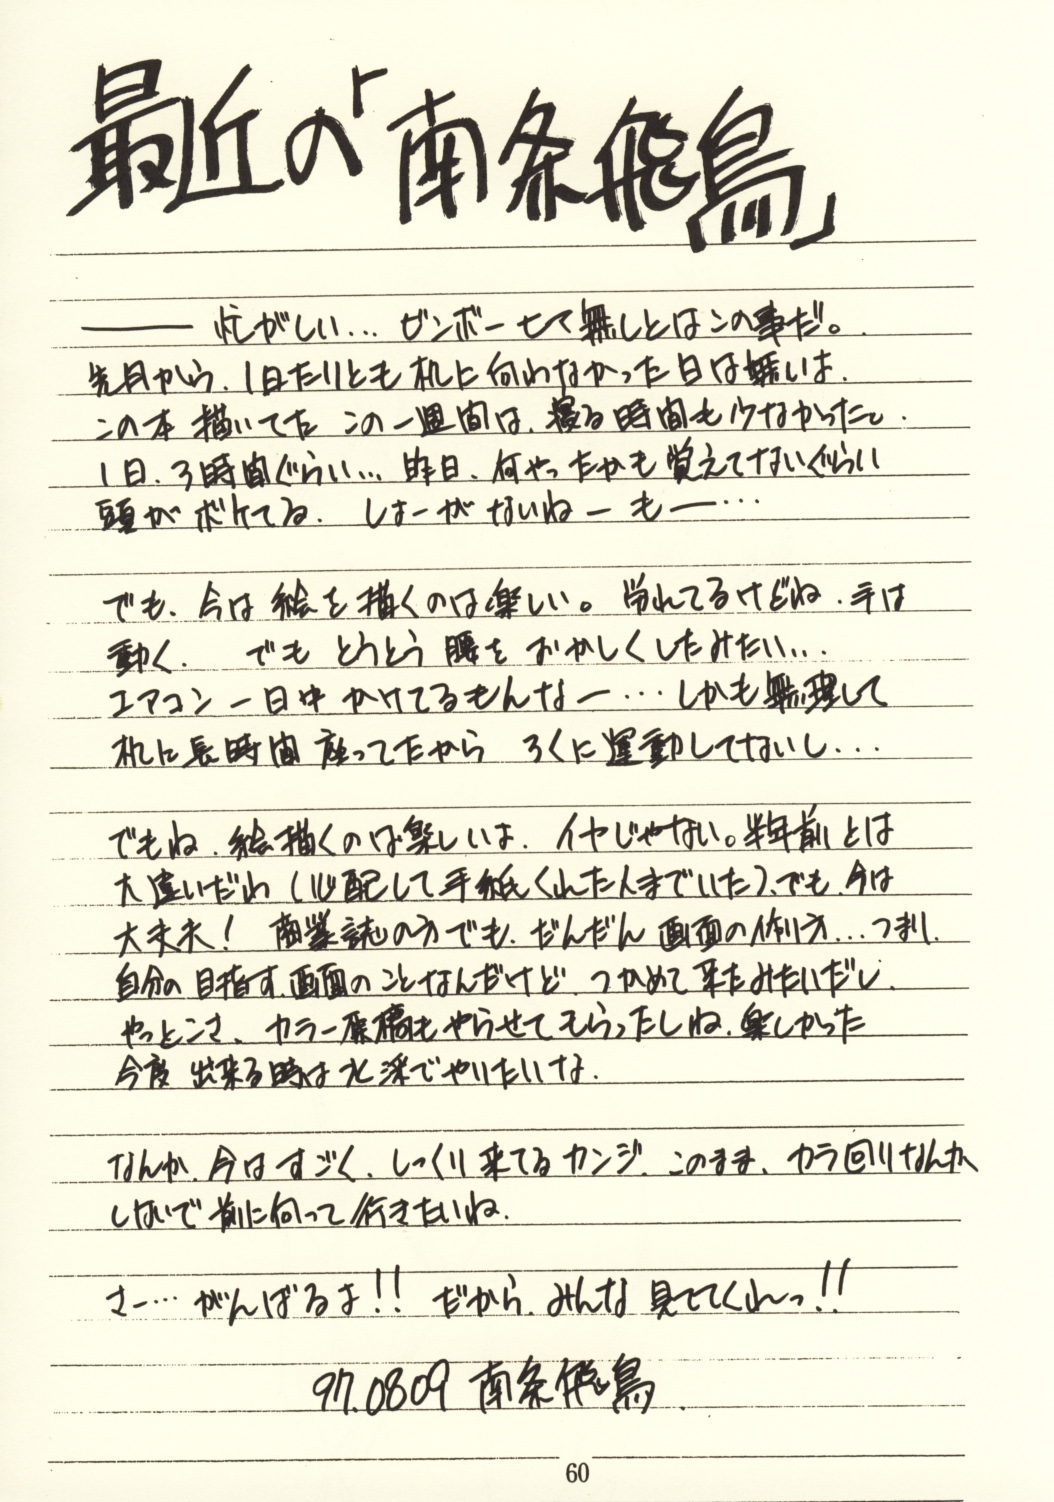 最近の「南条飛鳥」
―― 忙がしい… ゼンボー七て無しとはこの事だ。
先月から、1日たりとも机に向わなかった日は無いよ、
この本描いてた この一週間は、寝る時間も少なかったし、
1日、3時間ぐらい… 昨日、何やったかも覚えてないぐらい
頭がボケてる、 しょーがないねー もー…
でも、今は絵を描くのは楽しい。労れてるけどね、手は
動く、 でも とうとう 腰を おかしくしたみたい…
エアコン一日中 かけてるもんなー…しかも無理して
机に長時間 座ってたから ろくに運動してないし…
でもね、絵描くのは楽しいよ、イヤじゃない。半年前とは
大違いだわ(心配して手紙くれた人までいた)、でも、今は
大丈夫! 商業誌の方でも、だんだん 画面の作り方…つまり、
自分の目指す、画面のことなんだけど、つかめて来たみたいだし、
やっとこさ、カラー原稿もやらせてもらったしね、楽しかった
今度 出来る時は水彩でやりたいな、
なんか、今はすごく、しっくり来てるカンジ、このまま、カラ回りなんか
しないで前に向って行きたいね、
さー… がんばるよ!! だから、みんな見ててくれーっ!!
97.0809 南条飛鳥.
60